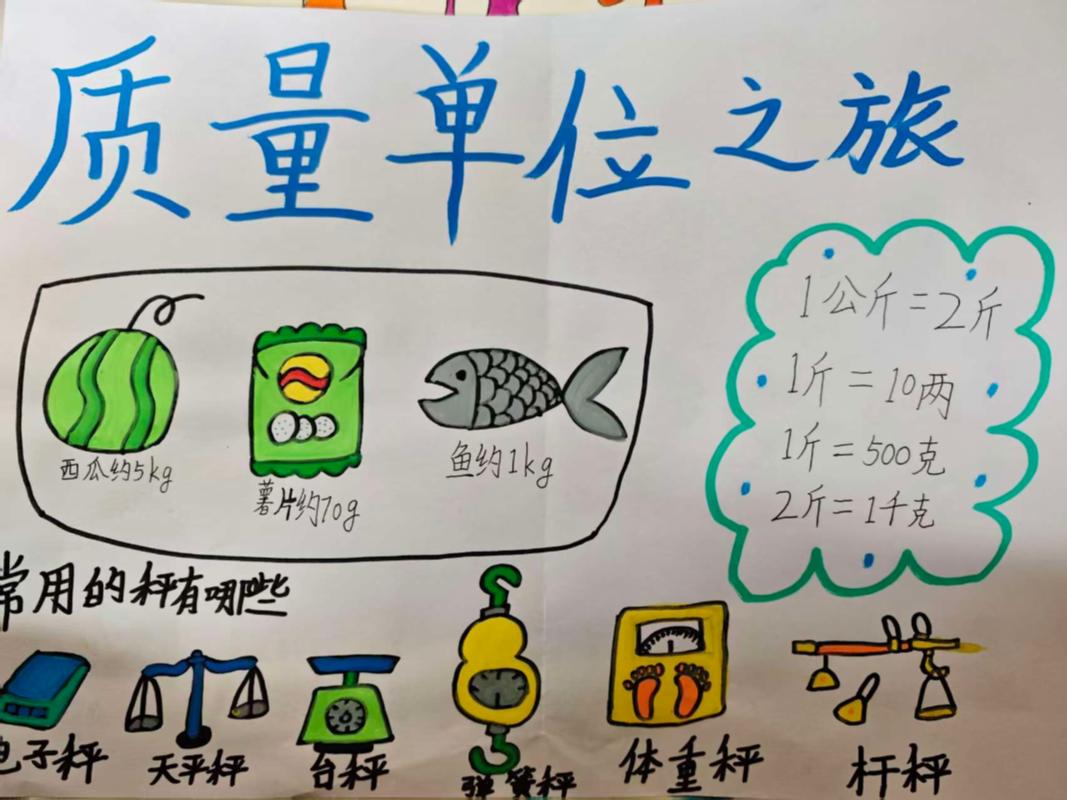 质量单位之旅
1公斤=2斤
1斤=10两
1斤=500克
2斤=1千克
西瓜约5kg
薯片约70g
鱼约1kg
常用的秤有哪些
电子秤
天平秤
台秤
弹簧秤
体重秤
杆秤